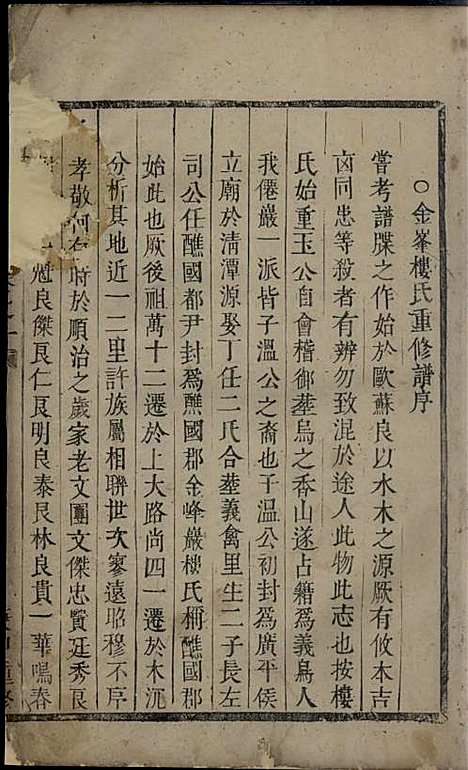 ○金峯樓氏重修譜序
嘗考譜牒之作始於歐蘇良以水木之源厥有攸本吉
凶同患等殺者有辨勿致混於途人此物此志也按樓
氏始重玉公自會稽御葬烏之香山遂占籍爲義烏人
我僊巖一派皆子溫公之裔也子溫公初封爲廣平侯
立廟於清潭源娶丁任二氏合葬義禽里生二子長左
司公任醮國都尹封爲醮國郡金峰巖樓氏稱醮國郡
始此也厥後祖萬十二遷於上大路尚四一遷於木沉
分析其地近一二里許族屬相聯世次寥遠昭穆不序
孝敬何 時於順治之歲家老文團文傑忠賢廷秀良
魁良傑良仁良明良泰良林良貴一華鳴春